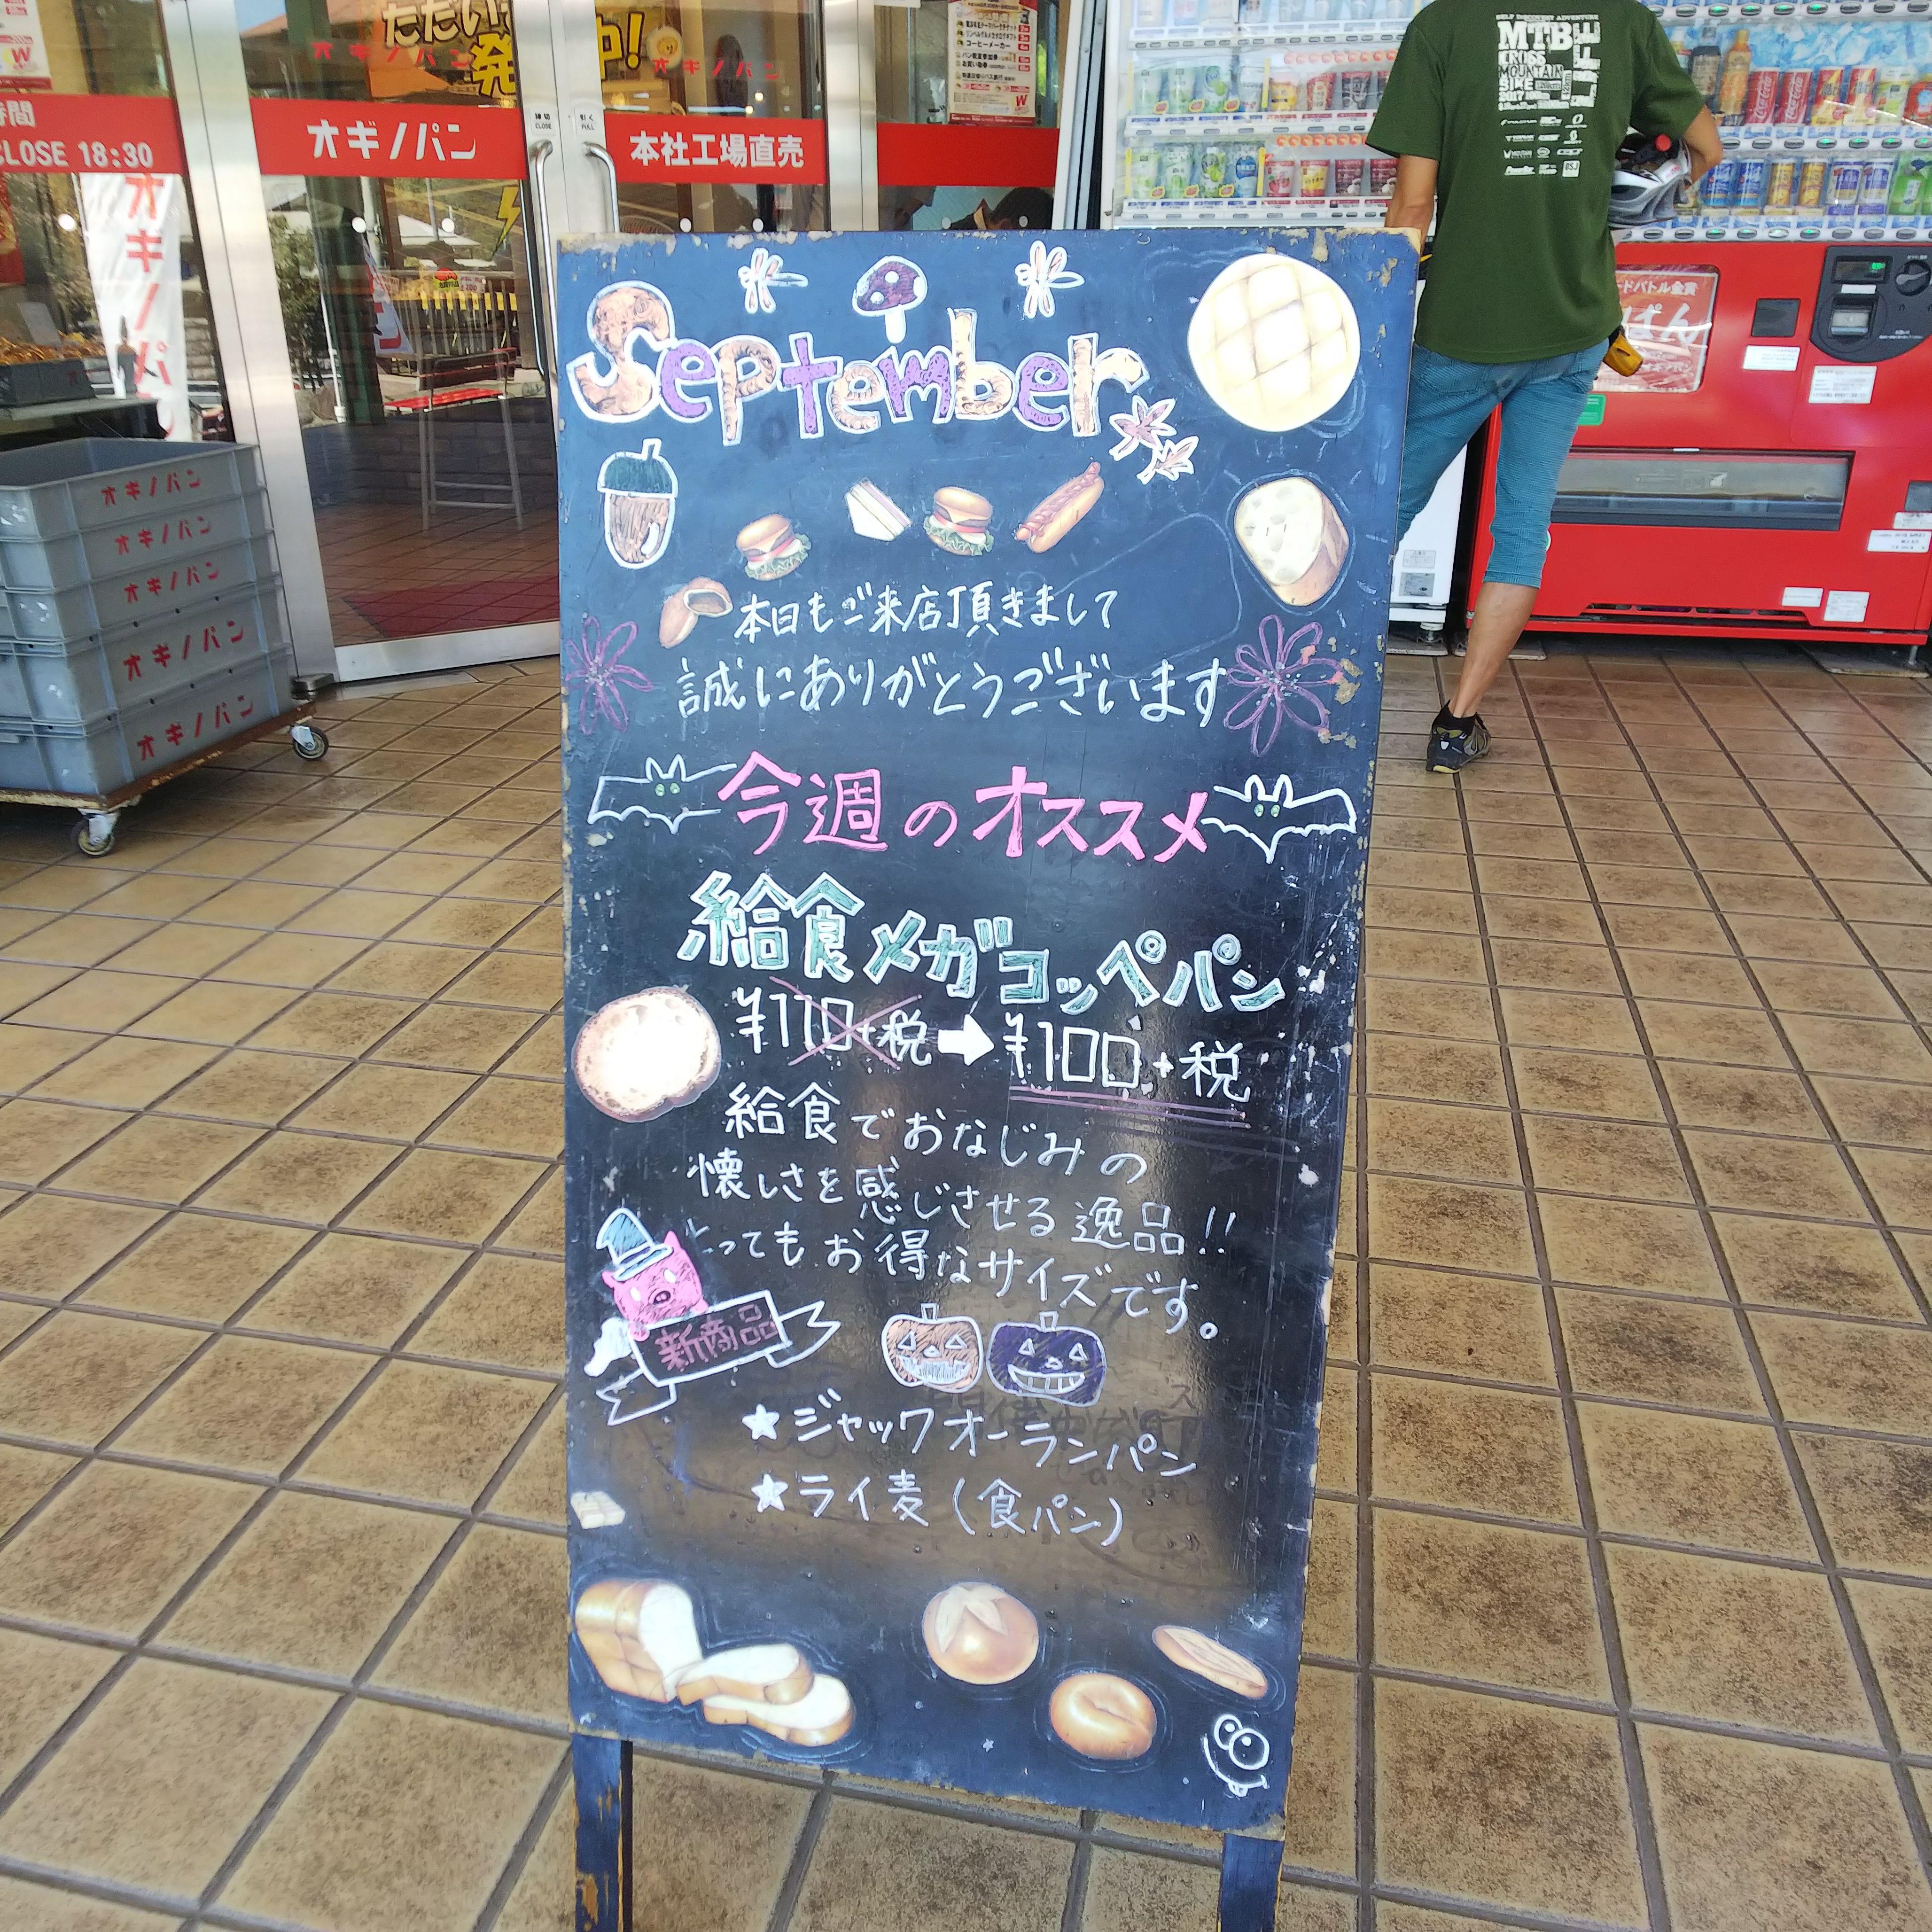 ただい
発 中!
オギノパン
オギノパン
時間
CLOSE 18:30
オギノパン
締切
CLOSE
引く
PULL
本社工場直売
オギノパン
オギノパン
オギノパン
オギノパン
オギノパン
オギノパン
コーヒーメーカー
W
MTB
KROSS
MOUNTAIN
BIKE
2017
Coca-Cola
September
本日もご来店頂きまして
誠にありがとうございます
今週のオススメ
給食メガコッペパン
¥110+税➡¥100+税
給食でおなじみの
懐しさを感じさせる逸品!!
とってもお得なサイズです。
新商品
★ジャックオーランパン
★ライ麦(食パン)